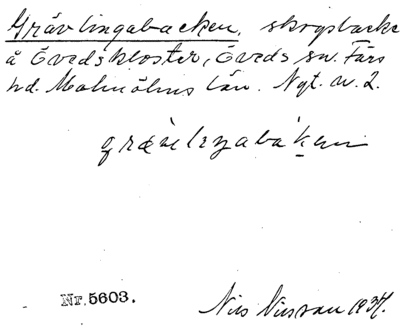 Grävlingabacken, skogsbacke
å Övedskloster, Öveds sn. Färs
hd. Malmöhus län. Nyt. n. 2.
Nr. 5603.
Nils Nilsson 1934.